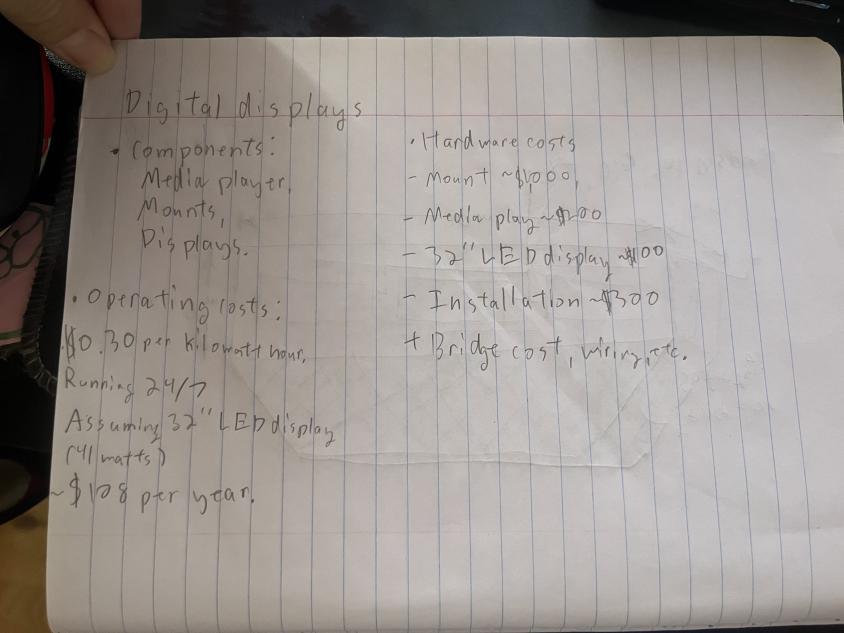 Digital displays
• Components:
Media player,
Mounts,
Displays.
• Operating costs:
$0.30 per kilowatt hour,
Running 24/7
Assuming 32" LED display
(41 watts)
~$108 per year.
• Hardware costs
- Mount ~$1,000,
- Media play ~$200
- 32" LED display ~$100
- Installation ~$300
+ Bridge cost, wiring, etc.